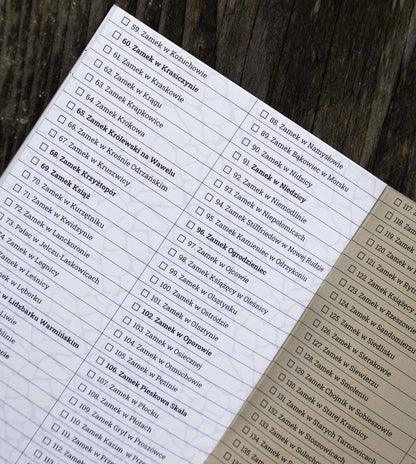 59. Zamek w Kożuchowie
60. Zamek w Krasiczynie
61. Zamek w Kraskowie
62. Zamek w Krągu
63. Zamek Krapkowice
64. Zamek Krokowa
65. Zamek Królewski na Wawelu
66. Zamek w Krośnie Odrzańskim
67. Zamek w Kruszwicy
68. Zamek Krzyżtopór
69. Zamek Książ
70. Zamek w Kurzętniku
71. Zamek w Kwidzynie
72. Zamek w Lanckoronie
73. Pałac w Jelczu-Laskowicach
Zamek w Legnicy
Zamek w Leśnicy
Zamek w Lęborku
w Lidzbarku Warmińskim
88. Zamek w Namysłowie
89. Zamek Bąkowiec w Morsku
90. Zamek w Nidzicy
91. Zamek w Niedzicy
92. Zamek w Niemodlinie
93. Zamek w Niepołomicach
94. Zamek Stillfriedów w Nowej Rudzie
95. Zamek Kamieniec w Odrzykoniu
96. Zamek Ogrodzieniec
97. Zamek w Ojcowie
98. Zamek Książęcy w Oleśnicy
99. Zamek w Olsztynku
100. Zamek w Ostródzie
101. Zamek w Olsztynie
102. Zamek w Oporowie
103. Zamek w Osiecznej
104. Zamek w Otmuchowie
105. Zamek w Pęzinie
106. Zamek Pieskowa Skała
107. Zamek w Płocku
108. Zamek w Płotach
109. Zamek Gryf w Proszówce
110. Zamek Kazim. w
111. Zamek w
112. Zamek
113.
117.
118.
119.
120. Zamek
121. Zamek w
122. Zamek Książęcy
123. Zamek w Rzeszowie
124. Zamek w Sandomierzu
125. Zamek w Siedlisku
126. Zamek w Sierakowie
127. Zamek w Siewierzu
128. Zamek w Smoleniu
129. Zamek Chojnik w Sobieszowie
130. Zamek w Starej Kraśnicy
131. Zamek w Starych Tarnowicach
132. Zamek w Stoszowicach
133. Zamek w
134. Zamek
135.